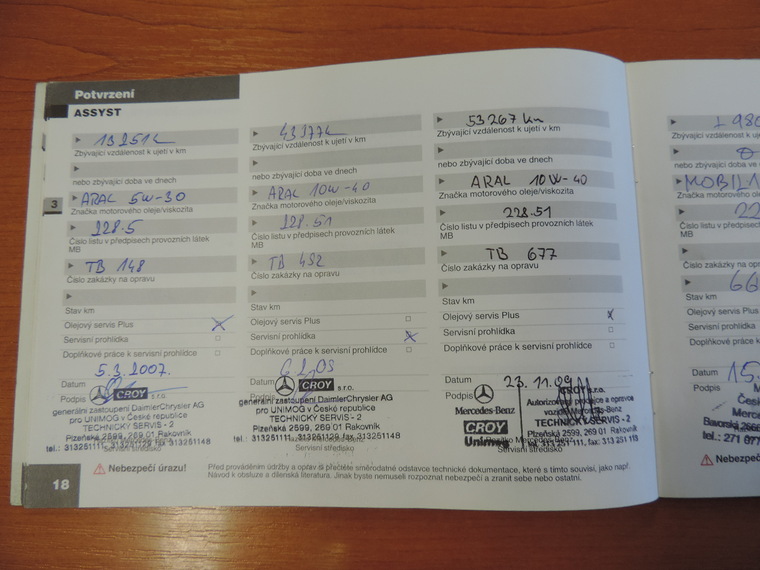 Potvrzení
ASSYST
3
13 251 L
Zbývající vzdálenost k ujetí v km
nebo zbývající doba ve dnech
ARAL 5W-30
Značka motorového oleje/viskozita
228.5
Číslo listu v předpisech provozních látek
MB
TB 148
Číslo zakázky na opravu
Stav km
Olejový servis Plus
Servisní prohlídka
Doplňkové práce k servisní prohlídce
5.3.2007.
Datum
Podpis
CROY s.r.o.
generální zastoupení DaimlerChrysler AG
pro UNIMOG v České republice
TECHNICKÝ SERVIS - 2
Plzeňská 2599, 269 01 Rakovník
tel.: 313251111, 313251129, fax 313251148
Servisní středisko
Zbývající vzdálenost k ujetí v km
nebo zbývající doba ve dnech
ARAL 10W-40
Značka motorového oleje/viskozita
228.51
Číslo listu v předpisech provozních látek
MB
TB 482
Číslo zakázky na opravu
Stav km
Olejový servis Plus
Servisní prohlídka
Doplňkové práce k servisní prohlídce
Datum
Podpis
CROY s.r.o.
generální zastoupení DaimlerChrysler AG
pro UNIMOG v České republice
TECHNICKÝ SERVIS - 2
Plzeňská 2599, 269 01 Rakovník
tel.: 313251111, 313251129, fax 313251148
Servisní středisko
53 267 km
Zbývající vzdálenost k ujetí v km
nebo zbývající doba ve dnech
ARAL 10W-40
Značka motorového oleje/viskozita
228.51
Číslo listu v předpisech provozních látek
MB
TB 677
Číslo zakázky na opravu
Stav km
Olejový servis Plus
Servisní prohlídka
Doplňkové práce k servisní prohlídce
Datum
23.11.09
Podpis
Mercedes-Benz
CROY
Unimog
CROY s.r.o.
Autorizovaný prodejce a opravce
vozidel Mercedes-Benz
TECHNICKÝ SERVIS - 2
Plzeňská 2599, 269 01 Rakovník
tel.: 313 251 111, fax: 313 251 115
Servisní středisko
Zbývající vzdálenost
nebo zbývající doba ve
MOBIL 1
Značka motorového
22
Číslo listu v předpisech
MB
Číslo zakázky na
66
Stav km
Olejový servis Plus
Servisní prohlídka
Doplňkové práce k
15.
Datum
Podpis
Merce
tel.: 271 077
Nebezpečí úrazu!
Před prováděním údržby a oprav si přečtěte směrodatné odstavce technické dokumentace, které s tímto souvisí, jako např.
Návod k obsluze a dílenská literatura. Jinak byste nemuseli rozpoznat nebezpečí a zranit sebe nebo ostatní.
18
Nebezpeč